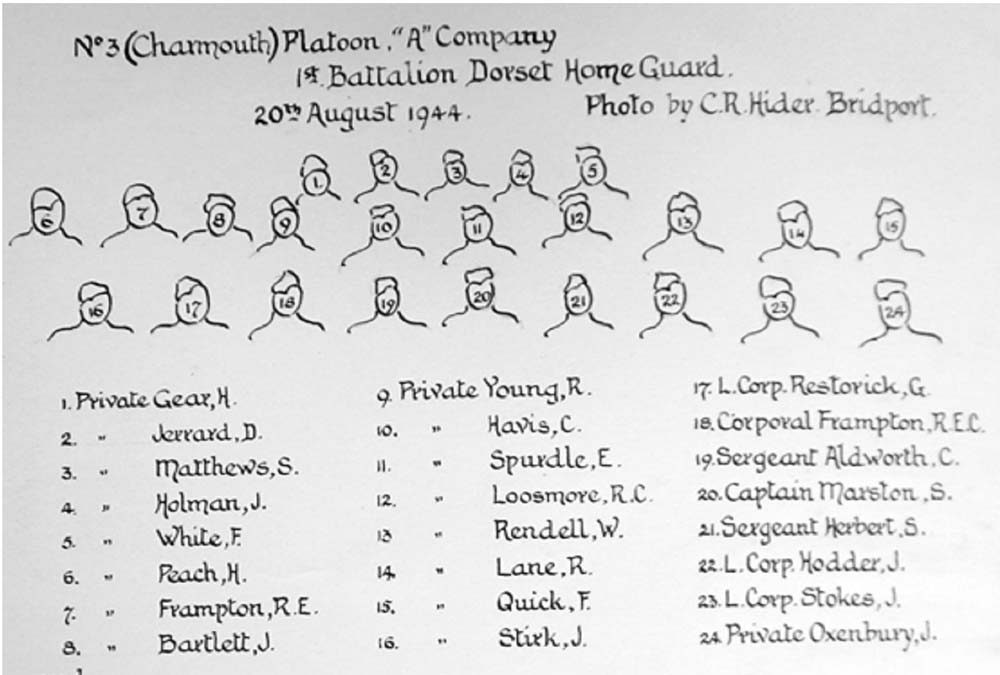 No 3 (Charmouth) Platoon. "A" Company
1st. Battalion Dorset Home Guard.
20th August 1944. Photo by C.R. Hider. Bridport.
1. 2 3 4 5
6 7 8 9 10 11 12 13 14 15
16 17 18 19 20 21 22 23 24
1. Private Gear, H.
2. " Jerrard, D.
3. " Matthews, S.
4. " Holman, J.
5. " White, F.
6. " Peach, H.
7. " Frampton, R.E.
8. " Bartlett, J.
9. Private Young, R.
10. " Havis, C.
11. " Spurdle, E.
12. " Loosmore, R.C.
13 " Rendell, W.
14 " Lane, R.
15. " Quick, F.
16. " Stirk, J.
17. L. Corp. Restorick, G.
18. Corporal Frampton, R.E.C.
19. Sergeant Aldworth, C.
20. Captain Marston, S.
21. Sergeant Herbert, S.
22. L. Corp. Hodder, J.
23. L. Corp. Stokes, J.
24. Private Oxenbury, J.